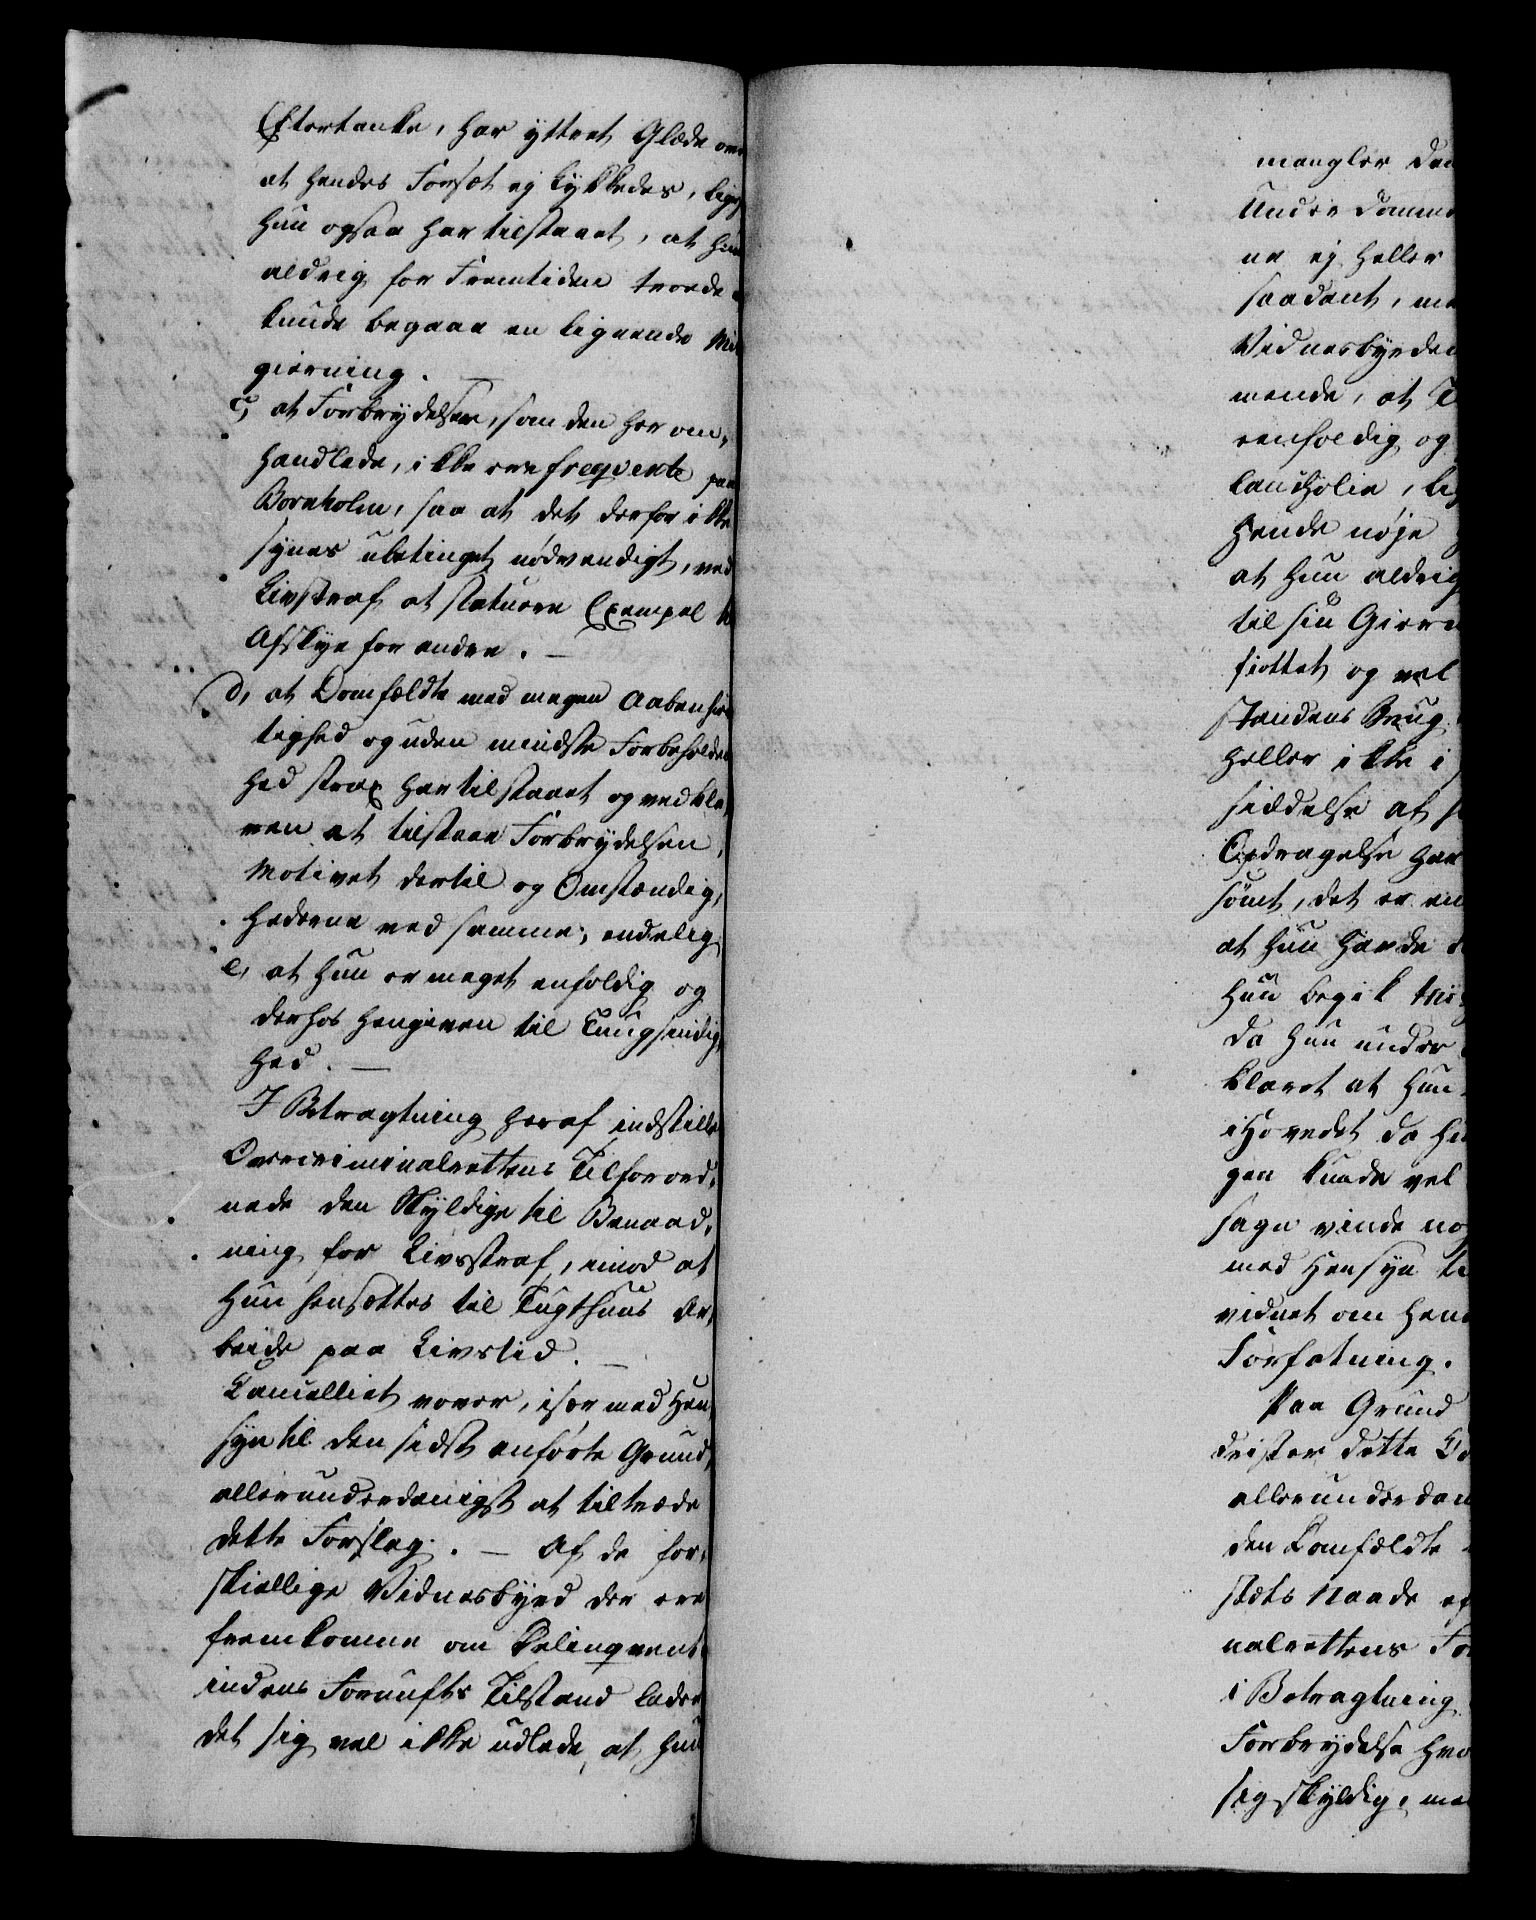 Eftertanke, har yttret Glæde over
at hendes Forsæt ej lykkedes, lige
hun ogsaa har tilstaaet, at hun
aldrig for Fremtiden troede
kunde begaae en lignende Mis
gierning. —
c, at Forbrydelser, som den her om,
handlede, ikke ere freqvente paa
Bornholm, saa at det derfor ikke
synes ubetinget nødvendigt, ved
Livsstraf at statuere Exempel til
Afskye for andre. —
d, at Domfældte med megen Aabenhier
tighed og uden mindste Forbeholden
hed strax har tilstaaet og vedble,
ven at tilstaae Forbrydelsen,
Motivet dertil og Omstændig,
hederne ved samme; endelig
e, at hun er meget enfoldig og
derhos hengiven til Tungsindig,
hed. —
I Betragtning heraf indstille
Overcriminalrettens Tilforord,
nede den Skyldige til Benaad,
ning for Livsstraf, imod at
hun hensættes til Tugthuus Ar,
beide paa Livstid. —
Cancelliet vover, især med Hen
syn til den sidst anførte Grund,
allerunderdanigst at tiltræde
dette Forslag. — Af de for,
skiellige Vidnesbyrd der ere
fremkomne om Delinqvent,
indens Fornufts Tilstand lader
det sig vel ikke udlede, at hun
mangler den
Underdomme
ne ej heller
saadant, me
Vidnesbyrden
mende, at
eenfoldig og
landholie,
hende nøje
at hun aldrig
til sin Giern
siottet og vel
standens Brug
heller ikke i
siddelse af
Opdragelse har
sömt, det er
at hun havde
hun begik
da hun under
klaret at hun
i Hovedet da
gen kunde vel
sagn vinde nog
med Hensyn til
vidnet om hend
Forfatning.
Paa Grund
drister dette
allerunderdan
den Domfældte
stæts Naade
nalrettens
i Betragtning
Forbrydelse hvo
sig skyldig, me